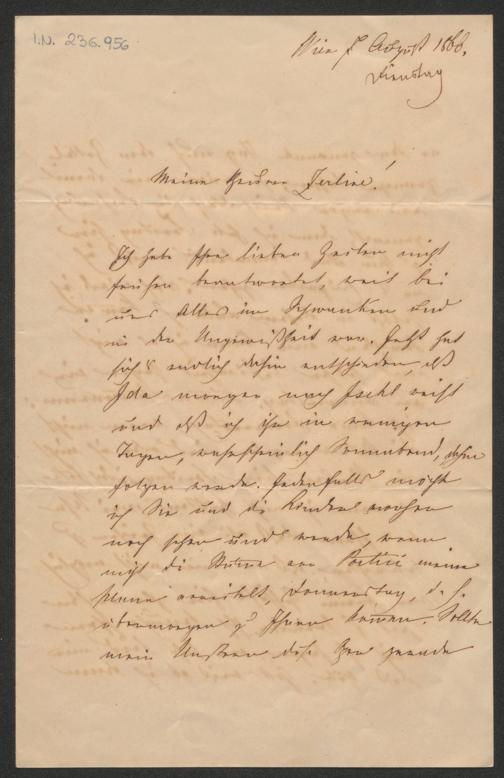 I.N. 236.956
Wien 7 August 1866.
Dienstag
Meine theure Zerline!
Ich habe Ihre lieben Zeilen nicht
früher beantwortet, weil bei
uns Alles im Schwanken und
in der Ungewißheit war. Jetzt hat
sich's endlich dahin entschieden, daß
Ida morgen nach Ischl reist
und daß ich ihr in wenigen
Tagen, wahrscheinlich Sonnabend, dahin
folgen werde. Jedenfalls möchte
ich Sie und die Kinder vorher
noch sehen und werde, wenn
nicht die Stürme am meine
Pläne vereitelt, Donnerstag, d. h.
übermorgen zu Ihnen kommen. Sollte
mein Unstern das gerade